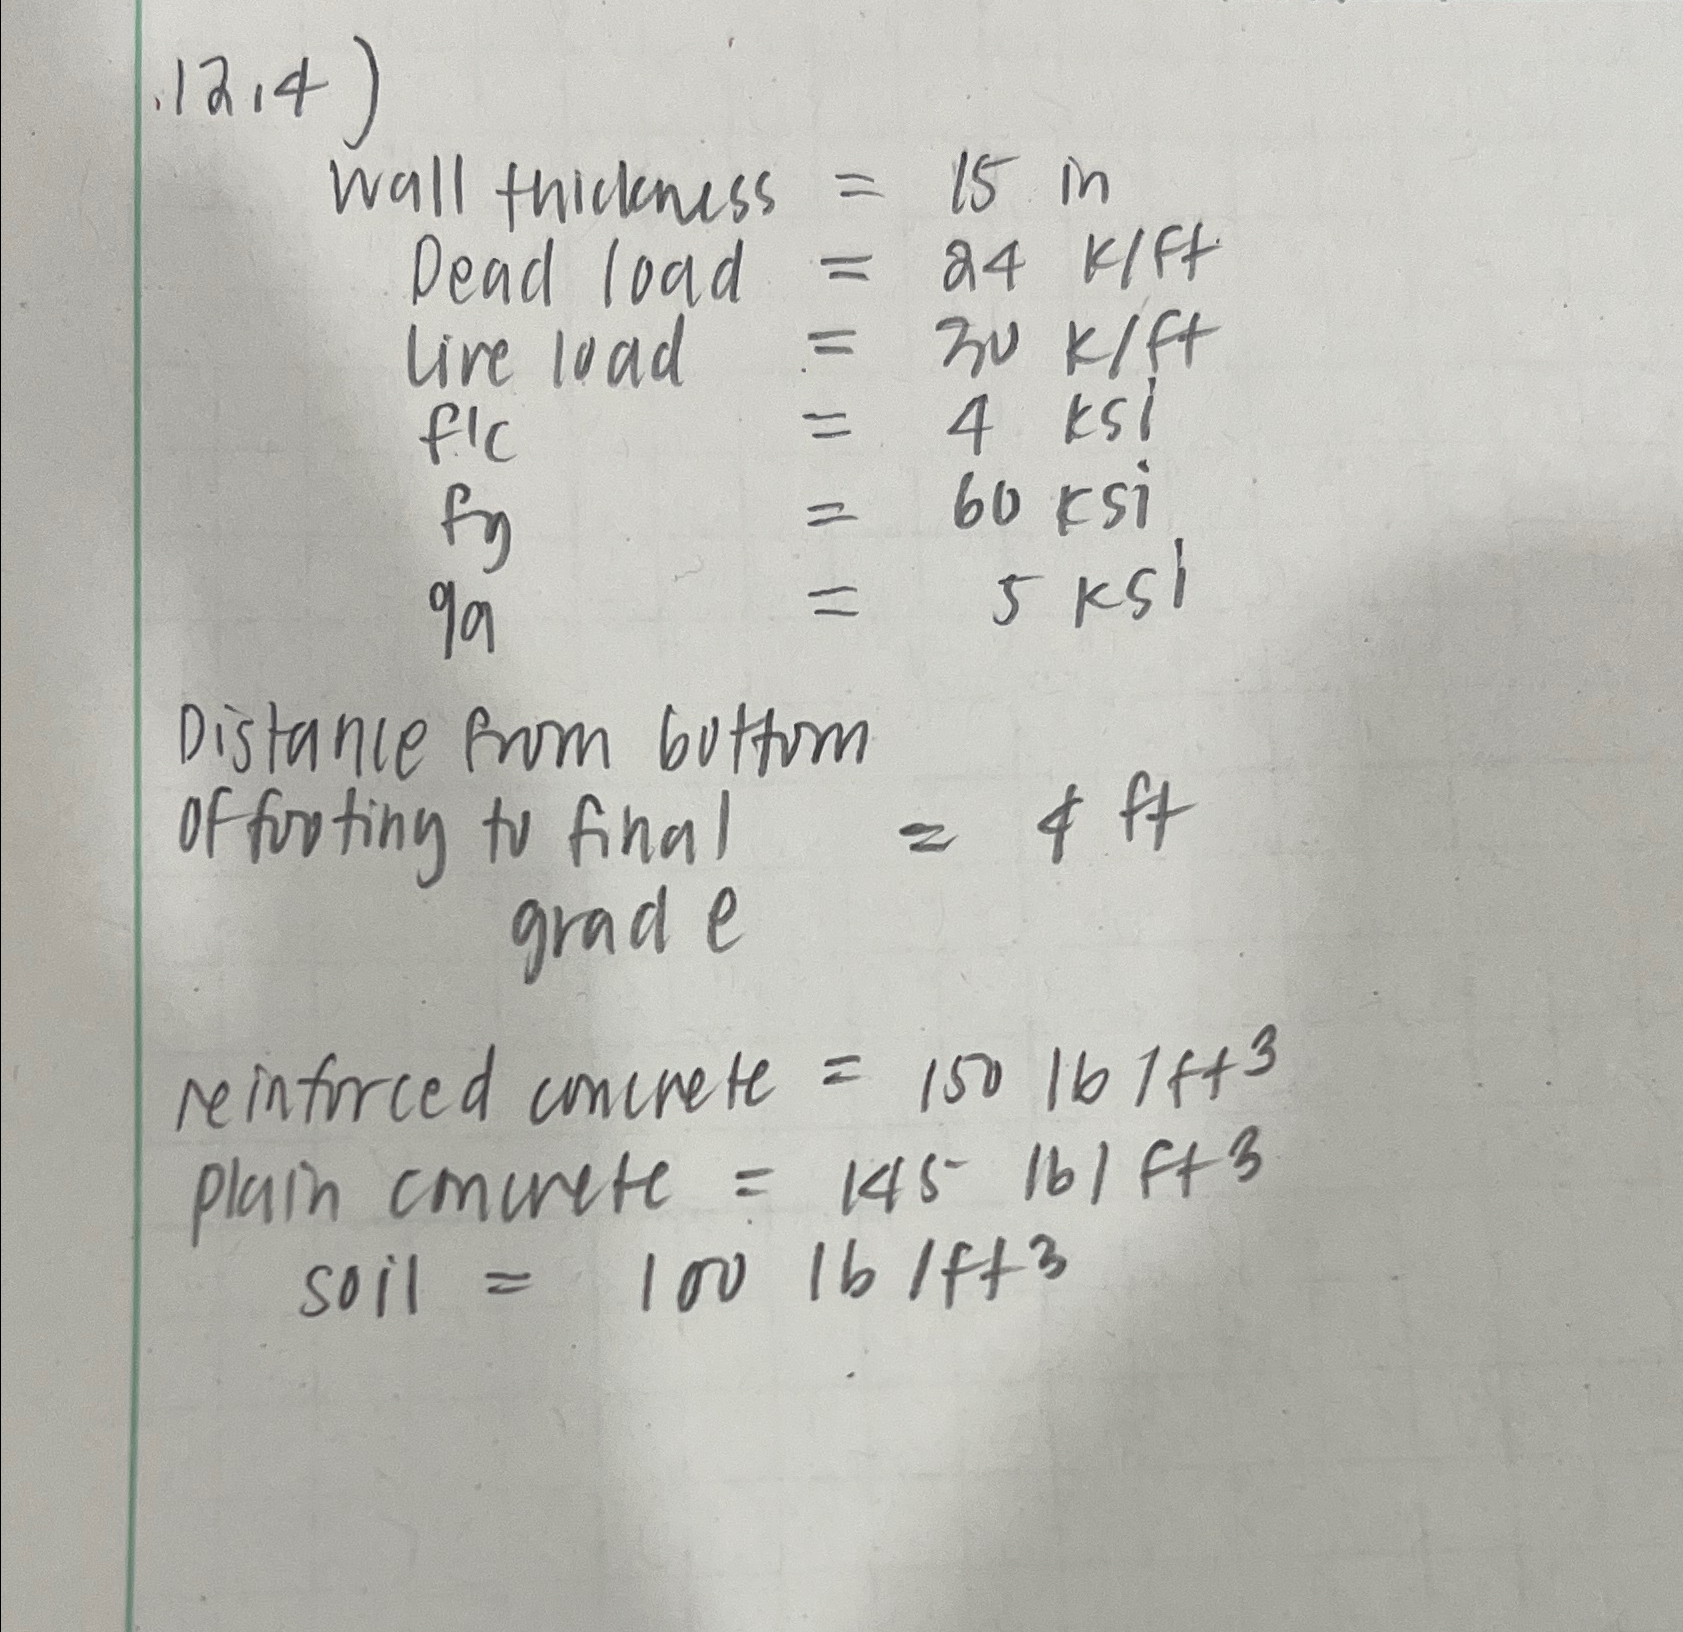 12.4)
Wall thickness = 15 in
Dead load = 24 k/ft
Live load = 30 k/ft
f'c = 4 ksi
fy = 60 ksi
qa = 5 ksi
Distance from bottom
of footing to final = 4 ft
grade
reinforced concrete = 150 lb/ft3
plain concrete = 145 lb/ft3
soil = 100 lb/ft3